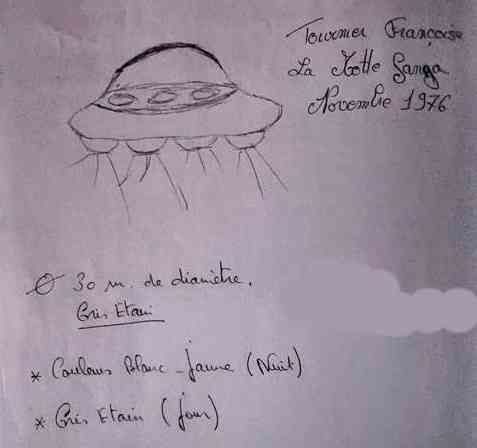 Tournier Françoise
La Motte Sanga
Novembre 1976
Ø 30 m. de diamètre.
Gris Etain
* Couleurs Blanc - Jaune (Nuit)
* Gris Etain (jour)